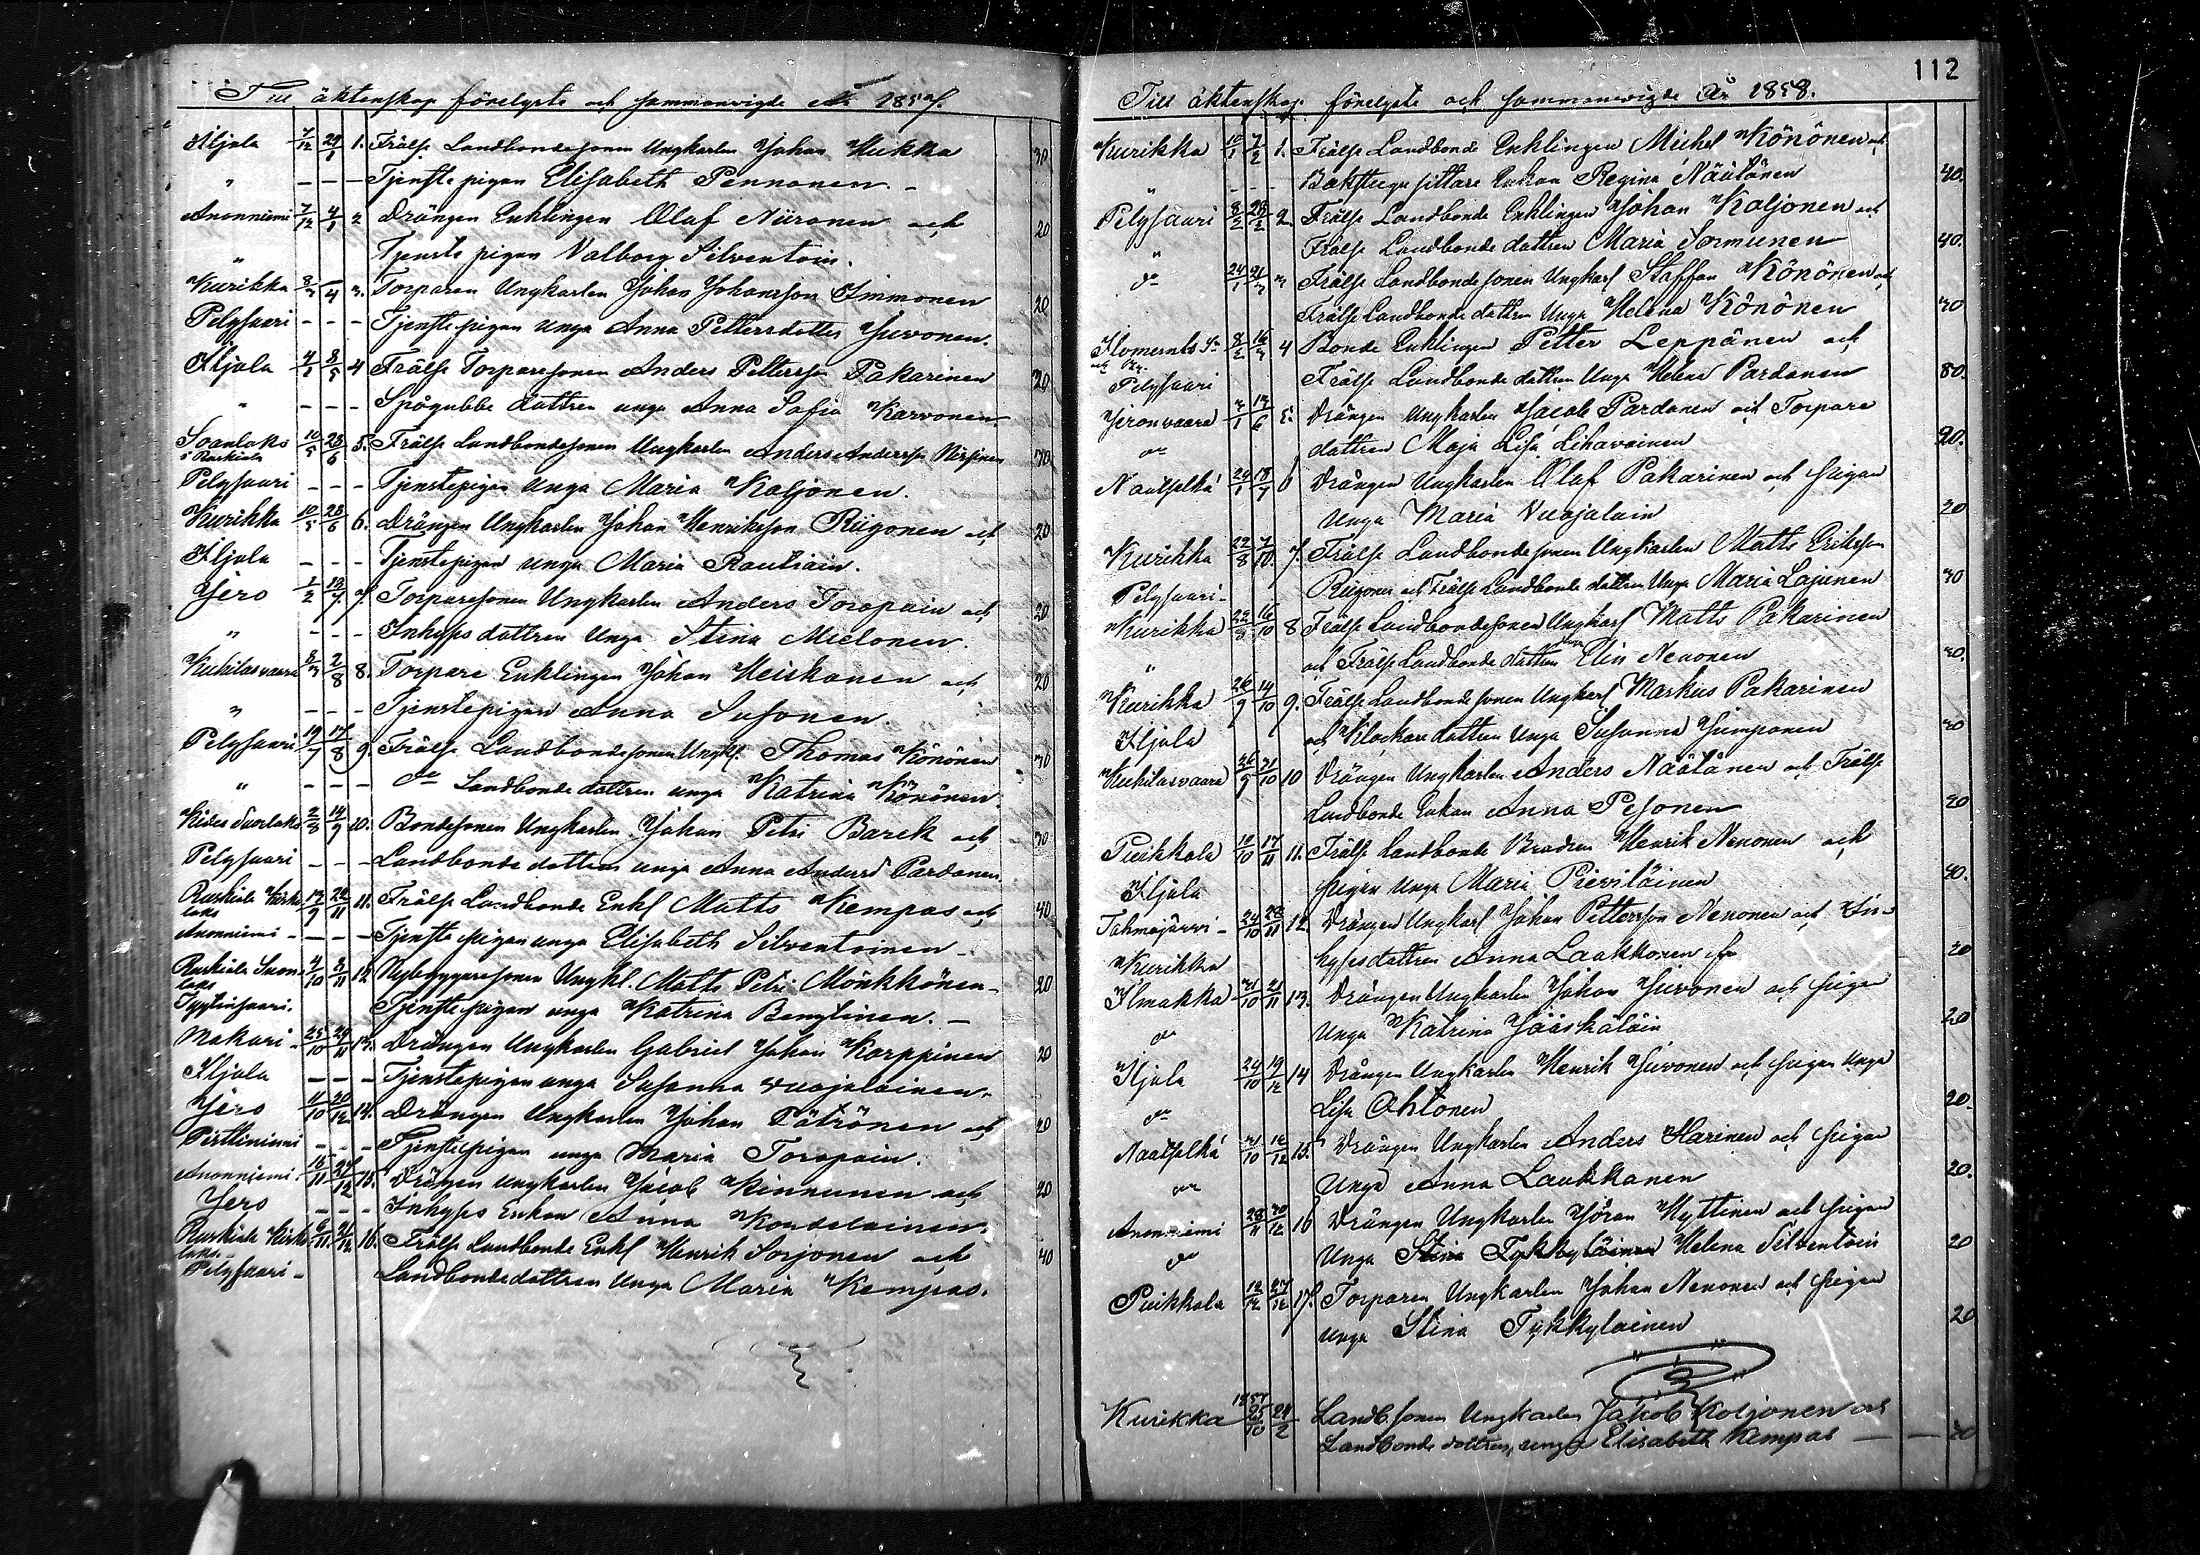 Till äktenskap förelyste och sammanvigde År 1857.
Iljala 7/12 29/1 1. Frälse Landbondesonen Ungkarlen Johan Hukka 30
" - - - Tjenstepigan Elisabeth Pennanen -
Anonniemi 7/12 4/1 2 Drängen Enklingen Olaf Niironen och 20
" Tjenste pigan Valborg Silventoin.
Kurikka 3. Torparen Ungkarlen Johan Johansson Immonen 20
Pelgsaari - - - Tjenste pigan unga Anna Pettersdotter Juvonen.
Iljala 4 Frälse Torparesonen Anders Pettersson Pakarinen 20
" - - - Spögubbe dottren unga Anna Sofia Karvonen
Soanlaks i Ruskiala 10/5 28/6 5. Frälse Landbondesonen Ungkarlen Anders Andersson Hirsinen 30
Pelgsaari - - - Tjenstepigan Unga Maria Koljonen.
Kurikka 10/5 28/6 6. Drängen Ungkarlen Johan Henriksson Riigonen och 20
Iljala - - - Tjenstepigan unga Maria Rautiain.
Jero 1/2 12/7 7. Torparesonen Ungkarlen Anders Toropain och 20
" - - - Inhyses dottren Unga Stina Mielonen.
Kukilasvaara 2/8 8. Torpare Enklingen Johan Heiskanen och 20
" - - - Tjenstepigan Anna Sasonen.
Pelgsaari 19/7 17/8 9. Frälse Landbondesonen Ungk. Thomas Könönen 30
" - - - do Landbonde dottren unga Katrina Könönen.
Kides Suorlaks 14/9 10. Bondesonen Ungkarlen Johan Petri Barck och 30
Pelgsaari - - - Landbonde dottren unga Anna Andersd Pardanen
Ruskiala Kirkolaks 11. Frälse Landbonde Enkl Matts Kempas och 40
Anonniemi - - - - Tjenste pigan unga Elisabeth Silventoinen -
Ruskiala Suonlaks 4/10 8/11 12 Nybyggaresonen Ungkl. Matts Petri Mönkkönen - 20
Tjenstepigan unga Katrina Bengtinen. -
Makari - 25/10 29/11 13. Drängen Ungkarlen Gabriel Johan Karppinen 20
Iljala - - - Tjenstepigan unga Susanna Vuojalainen.
Jero 11/10 20/12 14. Drängen Ungkarlen Johan Pätrönen och 20
Pirttiniemi - - - Tjenstepigan unga Maria Toropain.
Anonniemi 15/11 27/12 15. Drängen Ungkarlen Jacob Kinnunen och 20
Jero - - - Inhyses Enkan Anna Kondelainen
Ruskiala Kirkolaks 16. Frälse Landbonde Enkl Henrik Sorjonen och 40
Pelgsaari - Landbondedottren Unga Maria Kempas.
112
Till äktenskap förelyste och sammanvigde År 1858.
Kurikka 10/1 7/2 1. Frälse Landbonde Enklingen Michel Könönen och
" - - - Backstugu sittare Enkan Regina Näätänen 40.
Pelgsaari 8/2 28/2 2. Frälse Landbonde Enklingen Johan Koljonen och
" Frälse Landbonde dottren Maria Sormunen 40.
do 24/1 21/3 3 Frälse Landbondesonen Ungkarl Staffan Könönen och
Frälse Landbonde dottren Unga Helena Könönen 30
Ilomants 4 Bonde Enklingen Petter Leppänen och
Pelgsaari Frälse Landbonde dottren Unga Helena Pardanen 80.
Jeronvaara 5. Drängen Ungkarlen Jacob Pardanen och Torpare
do dottren Maja Lisa Lihavainen 20.
Naatselkä 24/1 18/7 6 Drängen Ungkarlen Olaf Pakarinen och pigan
Unga Maria Vuojalain 20
Kurikka 22/8 7/10. 7. Frälse Landbondesonen Ungkarlen Matts Eriksson
Pelgsaari - Riigonen och Frälse Landbonde dottren Unga Maria Lajunen 30
Kurikka 16/10 8 Frälse Landbondesonen Ungkarl Matts Pakarinen
" och Frälse Landbonde dottren Elin Nenonen 30.
Kurikka 26/9 14/10 9. Frälse Landbondesonen Ungkarl Markus Pakarinen
Iljala och Klockare dottren Unga Susanna Jumponen 30
Kukilasvaara 26/9 31/10 10 Drängen Ungkarlen Anders Näätänen och Frälse
Landbonde Enkan Anna Pesonen 20
Puikkola 10/10 17/11 11. Frälse Landbonde Brodren Henrik Nenonen och
Iljala pigan Unga Maria Pieviläinen 30.
Tohmajärvi - 24/10 28/11 12. Drängen Ungkarl Johan Pettersson Nenonen och In-
Kurikka hysesdottren Anna Laakkonen 20
Ilmakka 31/10 21/11 13. Drängen Ungkarlen Johan Juvonen och pigan
do Unga Katrina Jääskäläin 20
Iljala 24/10 19/12 14 Drängen Ungkarlen Henrik Juvonen och pigan Unga
do Lisa Ahtonen 20.
Naatselkä 31/10 12/12 15. Drängen Ungkarlen Anders Harinen och pigan
do Unga Anna Laukkanen 20.
Anonniemi 28/11 30/12 16 Drängen Ungkarlen Jöran Hyttinen och pigan
do Unga Stina Tykkyläinen Helena Silventoin 20
Puikkola 12/12 27/12 17. Torparen Ungkarlen Johan Nenonen och pigan
unga Stina Tykkyläinen 20
Kurikka 1857 25/10 28/2 Landb.sonen Ungkarlen Jakob Koljonen och
Landbonde dottren, unga Elisabeth Kempas - - 30